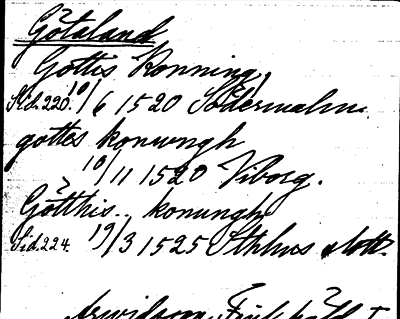 Götaland
Göttis Konning,
Sid. 220. 10/6 1520 Södermalm.
gottes konungh
10/11 1520 Viborg.
Götthis.. konungh
Sid. 224. 19/3 1525 Sthlms slott.
Arwidsson,